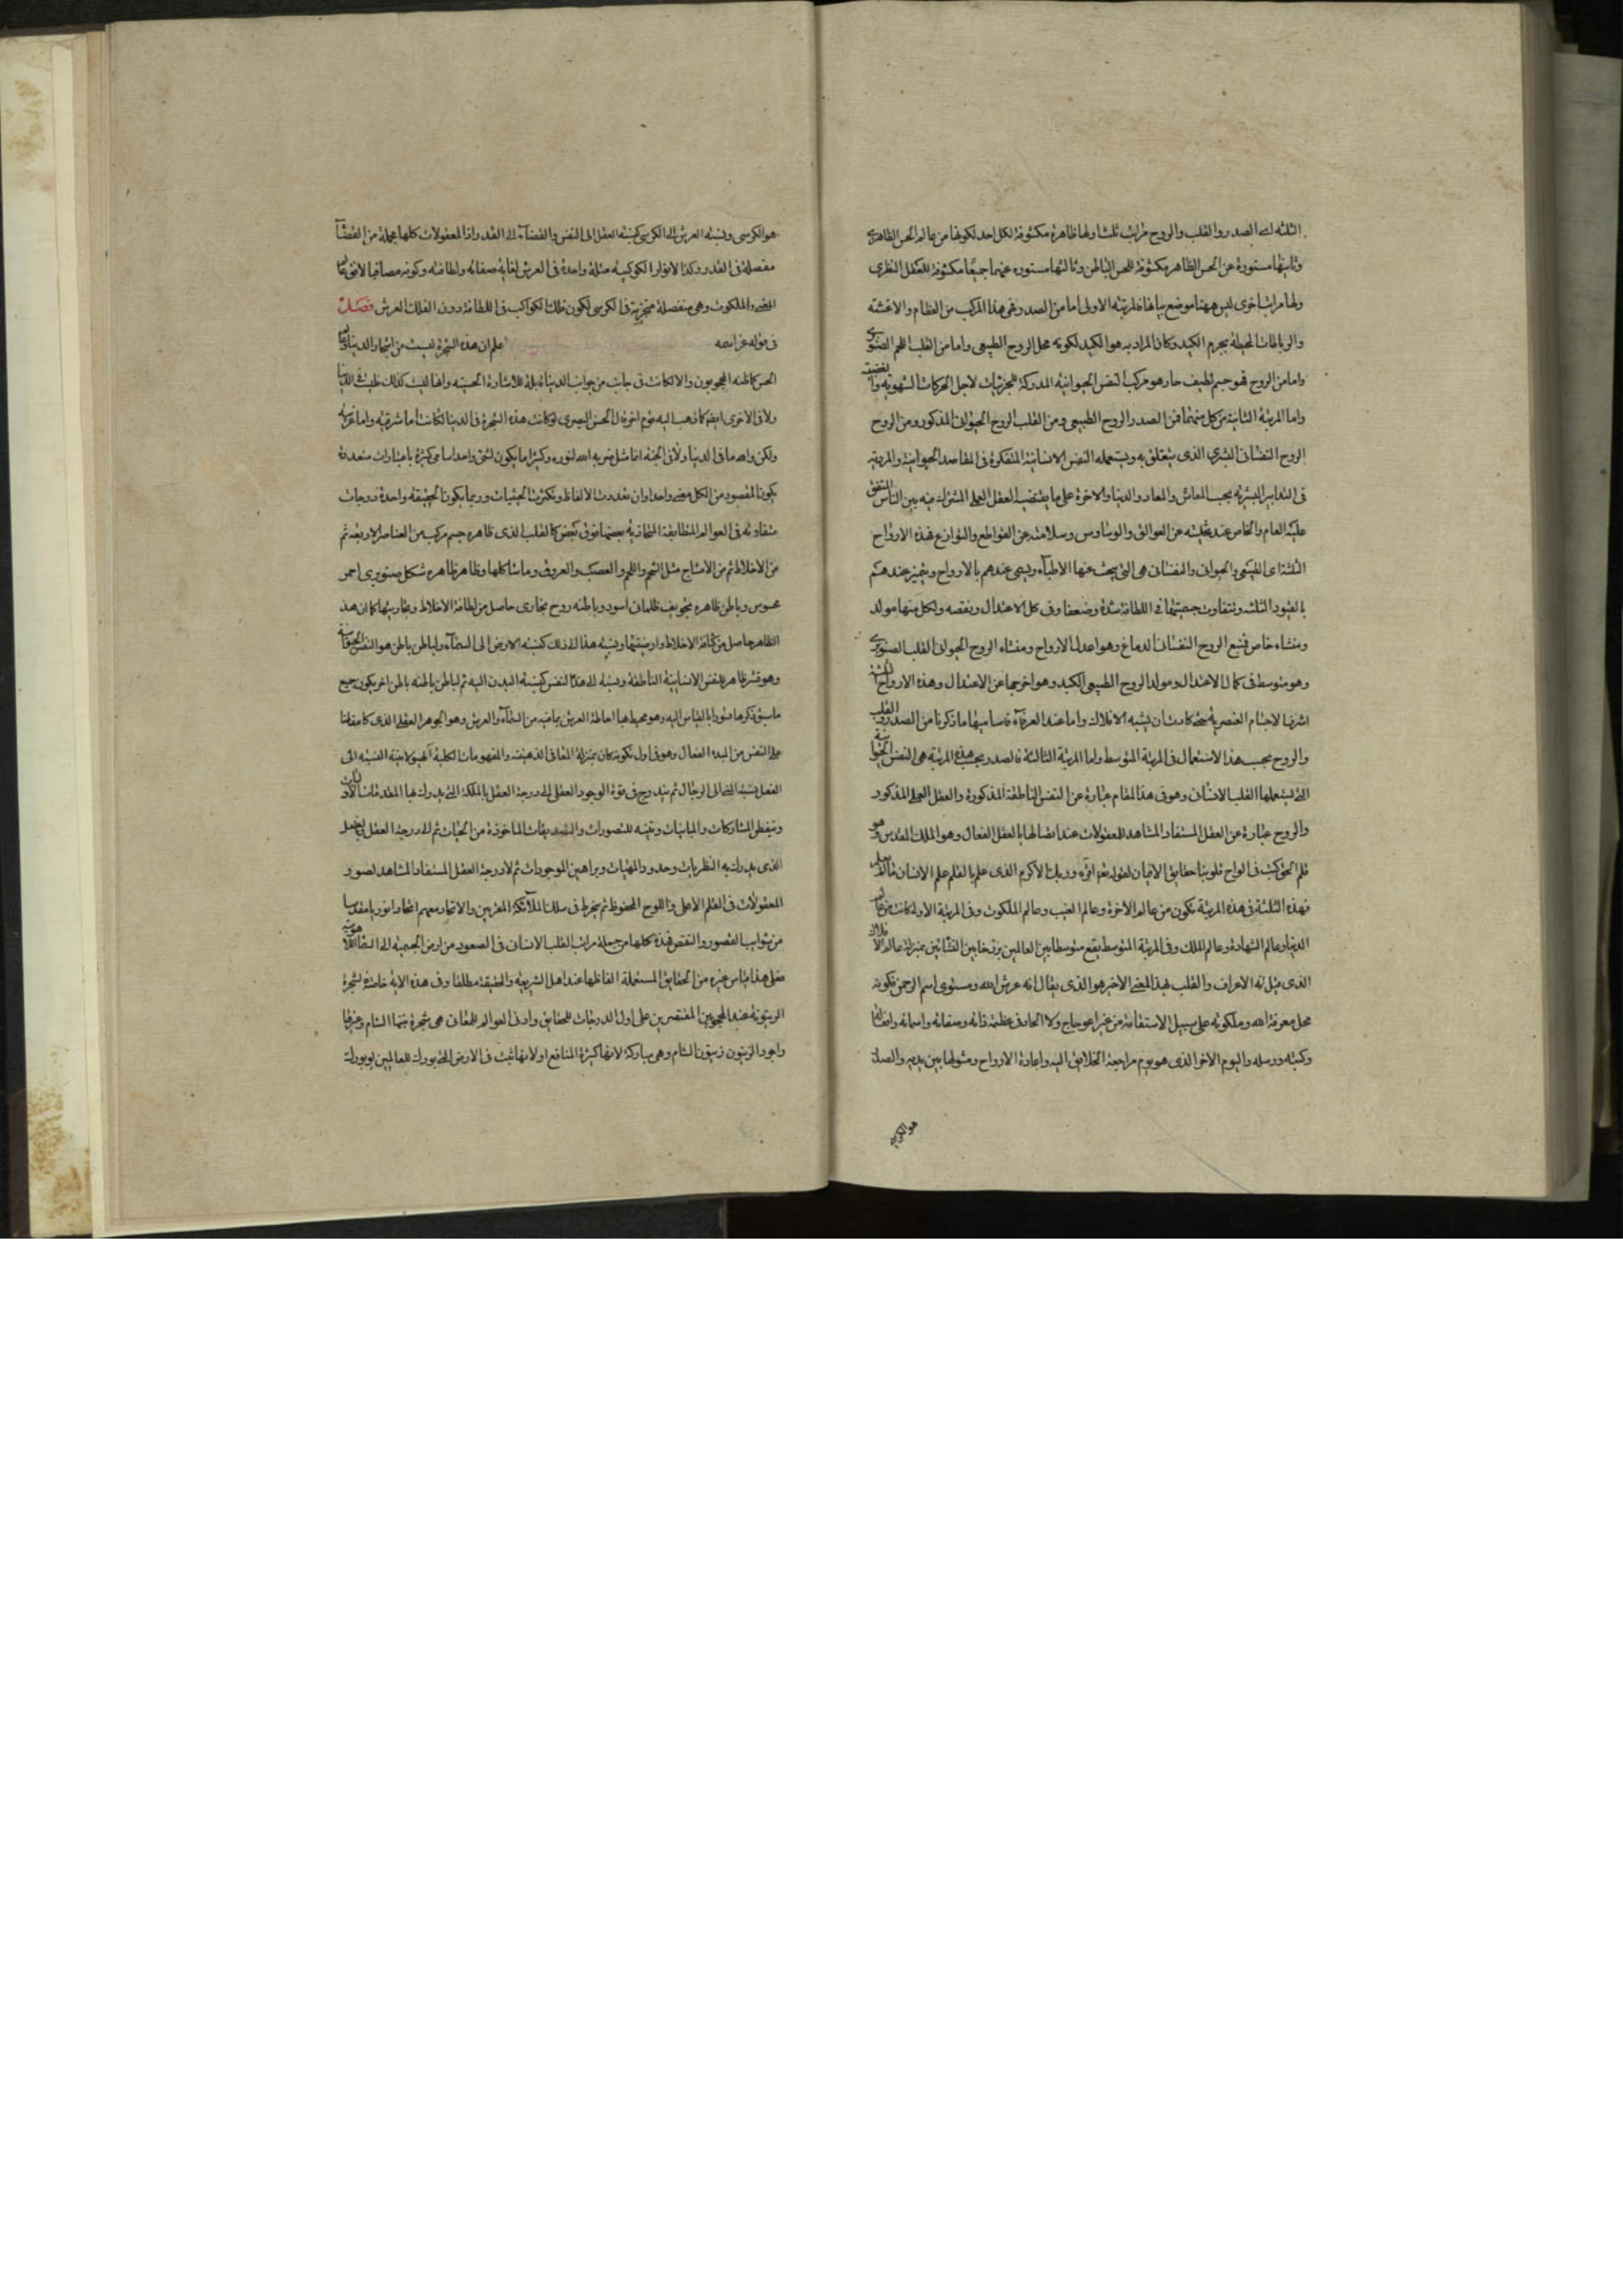 الثلثة اعنى الصدر والقلب والروح مراتب ثلثا اولها ظاهرة مكشوفة لكل احد لكونها من عالم الحس الظاهرى
وثانيها مستورة عن الحس الظاهر مكشوفة للحس الباطن وثالثها مستورة عنهما جميعا مكشوفة للعقل النظرى
ولها مراتب اخرى ليس ههنا موضع بيانها فالمرتبة الاولى اما من الصدر فهى هذا المركب من العظام والاغشية
والرباطات المحيطة بجرم الكبد وكان المراد به هو الكبد لكونه محل الروح الطبيعى واما من القلب اللحم الصنوبرى
واما من الروح فهو جسم لطيف حار هو مركب النفس الحيوانية المدركة للجزئيات لاجل الحركات الشهوية والغضبية
واما المرتبة الثانية من كل منهما فمن الصدر الروح الطبيعى ومن القلب الروح الحيوانى المذكور ومن الروح
الروح النفسانى البشرى الذى يتعلق به ويستعمله النفس الانسانية المتفكرة فى المقاصد الحيوانية والمروية
فى التدابير البشرية بحسب المعاش والمعاد والدنيا والاخرة على ما يقتضيه العقل العملى المشترك فيه بين الناس المتفق
عليه العام والخاص عند تخليته عن العوائق والوساوس وسلامته عن القواطع والنوازع فهذه الارواح
الثلثة اى الطبيعى والحيوانى والنفسانى هى التى يبحث عنها الاطباء ويسمى عندهم بالارواح ويتميز عندهم
بالقيود الثلثة ويتفاوت جسميتها فى اللطافة شدة وضعفا وفى كل الاعتدال ونقصه ولكل منها مولد
ومنشاء خاص فمنبع الروح النفسانى الدماغ وهو اعدل الارواح ومنشاء الروح الحيوانى القلب الصنوبرى
وهو متوسط فى كمال الاعتدال ومولد الروح الطبيعى الكبد وهو اخرجها عن الاعتدال وهذه الارواح الثلثة
اشرف الاجسام العنصرية حتى كادت ان يشبه الافلاك واما عند العرفاء فاساميها ما ذكرنا من الصدر والقلب
والروح بحسب هذا الاستعمال فى المرتبة المتوسط واما المرتبة الثالثة فالصدر بحسب هذه المرتبة هى النفس الحيوانية
التى يستعملها القلب الانسانى وهو فى هذا المقام عبارة عن النفس الناطقة المذكورة والعقل العملى المذكور
والروح عبارة عن العقل المستفاد المشاهد للمعقولات عند اتصالها بالعقل الفعال وهو الملك القدسى وهو
قلم الحق كتب فى الواح قلوبنا حقايق الايمان لقوله تعه اقرء وربك الاكرم الذى علم بالقلم علم الانسان ما لم يعلم
فهذه الثلثة فى هذه المرتبة تكون من عالم الاخرة وعالم الغيب وعالم الملكوت وفى المرتبة الاولى كانت من عالم
الدنيا وعالم الشهادة وعالم الملك وفى المرتبة المتوسط يقع متوسطا بين العالمين برزخا بين النشأتين بمنزلة عالم الافلاك
الذى قيل انه الاعراف والقلب بهذا المعنى الاخير هو الذى يقال انه عرش الله ومستوى اسم الرحمن لكونه
محل معرفة الله وملكوته على سبيل الاستقامة من غير اعوجاج ولا الحاد فى عظمة ذاته وصفاته واسمائه وافعاله
وكتبه ورسله واليوم الاخر الذى هو يوم مراجعة الخلايق اليه واعادة الارواح ومثولها بين يديه والصدر
هو الكرسى
هو الكرسى ونسبة العرش الى الكرسى كنسبة العقل الى النفس والقضاء الى القدر اذ المعقولات كلها مجملة من القضاء
مفصلة فى القدر وكذا الانوار الكوكبية مثلة واحدة فى العرش لغاية صفائه ولطافته وكونه مصاقبا لافق عالم
الغيب والملكوت وهى منفصلة متجزية فى الكرسى لكون فلك الكواكب فى اللطافة دون الفلك العرش فصل
فى قوله عز اسمه اعلم ان هذه الشجرة ليست من اشجار الدنيا وعالم
الحس كما ظنه المحجوبون والا لكانت فى جانب من جوانب الدنيا قابلة للاشارة الحسية وانها ليست كذلك فليست فى الدنيا
ولا فى الاخرى ايضا كما ذهب اليه قوم اخر قال الحسن البصرى لو كانت هذه الشجرة فى الدنيا لكانت اما شرقية واما غربية
ولكن والله ما فى الدنيا ولا فى الجنة انما مثل ضربه الله لنوره وكثيرا ما يكون لشئ واحد اسامى كثيرة باعتبارات متعددة
يكون المقصود من الكل معنى واحدا وان تعددت الالفاظ وتكثرت الحيثيات وربما يكون الحقيقة واحدة درجات
متفاوتة فى العوالم المتطابقة المتحاذية بعضها فوق بعض كالقلب الذى ظاهره جسم مركب من العناصر الاربعة ثم
من الاخلاط ثم من الامشاج مثل الشحم واللحم والعصب والعروق وما شاكلها وظاهر ظاهره شكل صنوبرى احمر
محسوس وباطن ظاهره تجويف ظلمانى اسود وباطنه روح بخارى حاصل من لطافة الاخلاط وبخاريتها كما ان هذ
الظاهر حاصل من كثافة الاخلاط وارضيتها ونسبة هذا الى ذلك كنسبة الارض الى السماء ولباطن باطن هو النفس الحيوانية
وهو قشر ظاهر للنفس الانسانية الناطقة ونسبة الى هذا النفس كنسبة البدن اليه ثم لباطن باطنه باطن اخر يكون جميع
ما سبق ذكرها قشورا بالقياس اليه وهو محيط بها احاطة العرش بما فيه من السماء والعرش وهو الجوهر العقلى الذى كما مفاضا
على النفس من المبدء الفعال وهو فى اول تكونه كان بمنزلة المعانى الذهنية والمفهومات الكلية الهيولانية النسبة الى
العقل نسبة المنى الى الرجال ثم يتدرج فى قوة الوجود العقلى الى درجة العقل بالملكة التى يدرك بها المقدمات الاوليات
ويتفطن المشاركات والمباينات وتنبه للتصورات والتصديقات الماخوذة من الحسيات ثم الى درجة العقل بالفعل
الذى يدرك به النظريات وحدود المهيات وبراهين الموجودات ثم لا درجة العقل المستفاد المشاهد لصور
المعقولات فى القلم الاعلى واللوح المحفوظ ثم ينخرط فى سلك الملائكة المقربين والاتحاد معهم اتحادا نوريا مقدسا
من شوايب القصور والنقص فهذه كلها من جملة مراتب القلب الانسانى فى الصعود من ارض الجسمية الى السماء اللاهوتية
فعلى هذا قياس غيره من الحقايق المستعملة الفاظها عند اهل الشريعة والحقيقة مطلقا وفى هذه الاية خاصة فشجرة
الزيتونة عند المحجوبين المقتصرين على اول الدرجات للحقايق وادنى العوالم للمعانى هى شجرة تنبتها الشام وغيرها
واجود الزيتون زيتون الشام وهى مباركة لانها كثيرة المنافع او لانها تنبت فى الارض التى بورك للعالمين او بورك